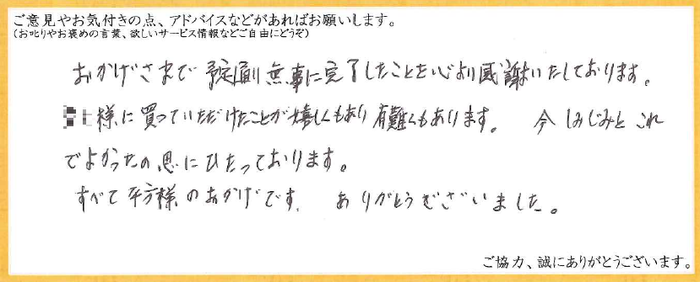 ご意見やお気付きの点、アドバイスなどがあればお願いします。
(お叱りやお褒めの言葉、欲しいサービス情報などご自由にどうぞ)
おかげさまで予定通り無事に完了したことを心より感謝いたしております。
様に買っていただけたことが嬉しくもあり有難くもあります。 今しみじみとこれ
でよかったの思にひたっております。
すべて平方様のおかげです。 ありがとうございました。
ご協力、誠にありがとうございます。